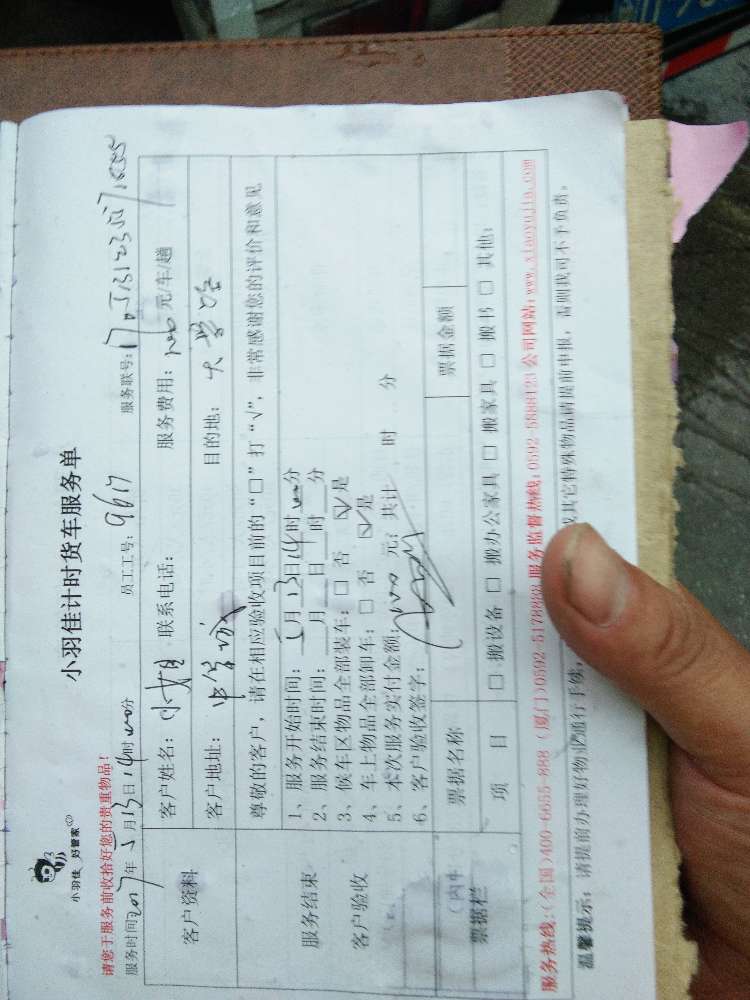 小羽佳 好管家
小羽佳计时货车服务单
请您于服务前收拾好您的贵重物品!
服务时间2017年5月13日14时00分 员工工号: 9617 服务联号:
客户资料
客户姓名: 小姐 联系电话: 服务费用: 200元/车/趟
客户地址: 目的地: 大学路
尊敬的客户, 请在相应验收项目前的“□”打“√”, 非常感谢您的评价和意见
服务结束
客户验收
1、服务开始时间: 5月13日14时00分
2、服务结束时间: 月 日 时 分
3、候车区物品全部装车: □ 否 ☑是
4、车上物品全部卸车: □ 否 ☑是
5、本次服务实付金额: 200 元; 共计 时 分
6、客户验收签字:
票据栏
票据名称 票据金额
项 目 □ 搬设备 □ 搬办公家具 □ 搬家具 □ 搬书 □ 其他:
服务热线:(全国)400-6655-888 (厦门)0592-5178888 服务监督热线:0592-5888123 公司网站:www.xiaoyujia.com
温馨提示: 请提前办理好物业通行手续, 或其它特殊物品请提前申报, 否则我司不予负责。